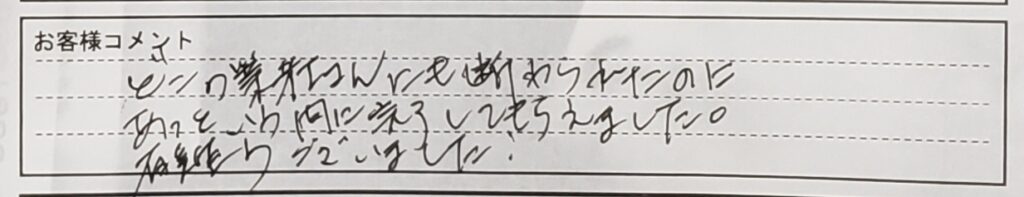 お客様コメント
どこの業者さんにも断わられたのに
あっという間に完了してもらえました。
有難うございました!